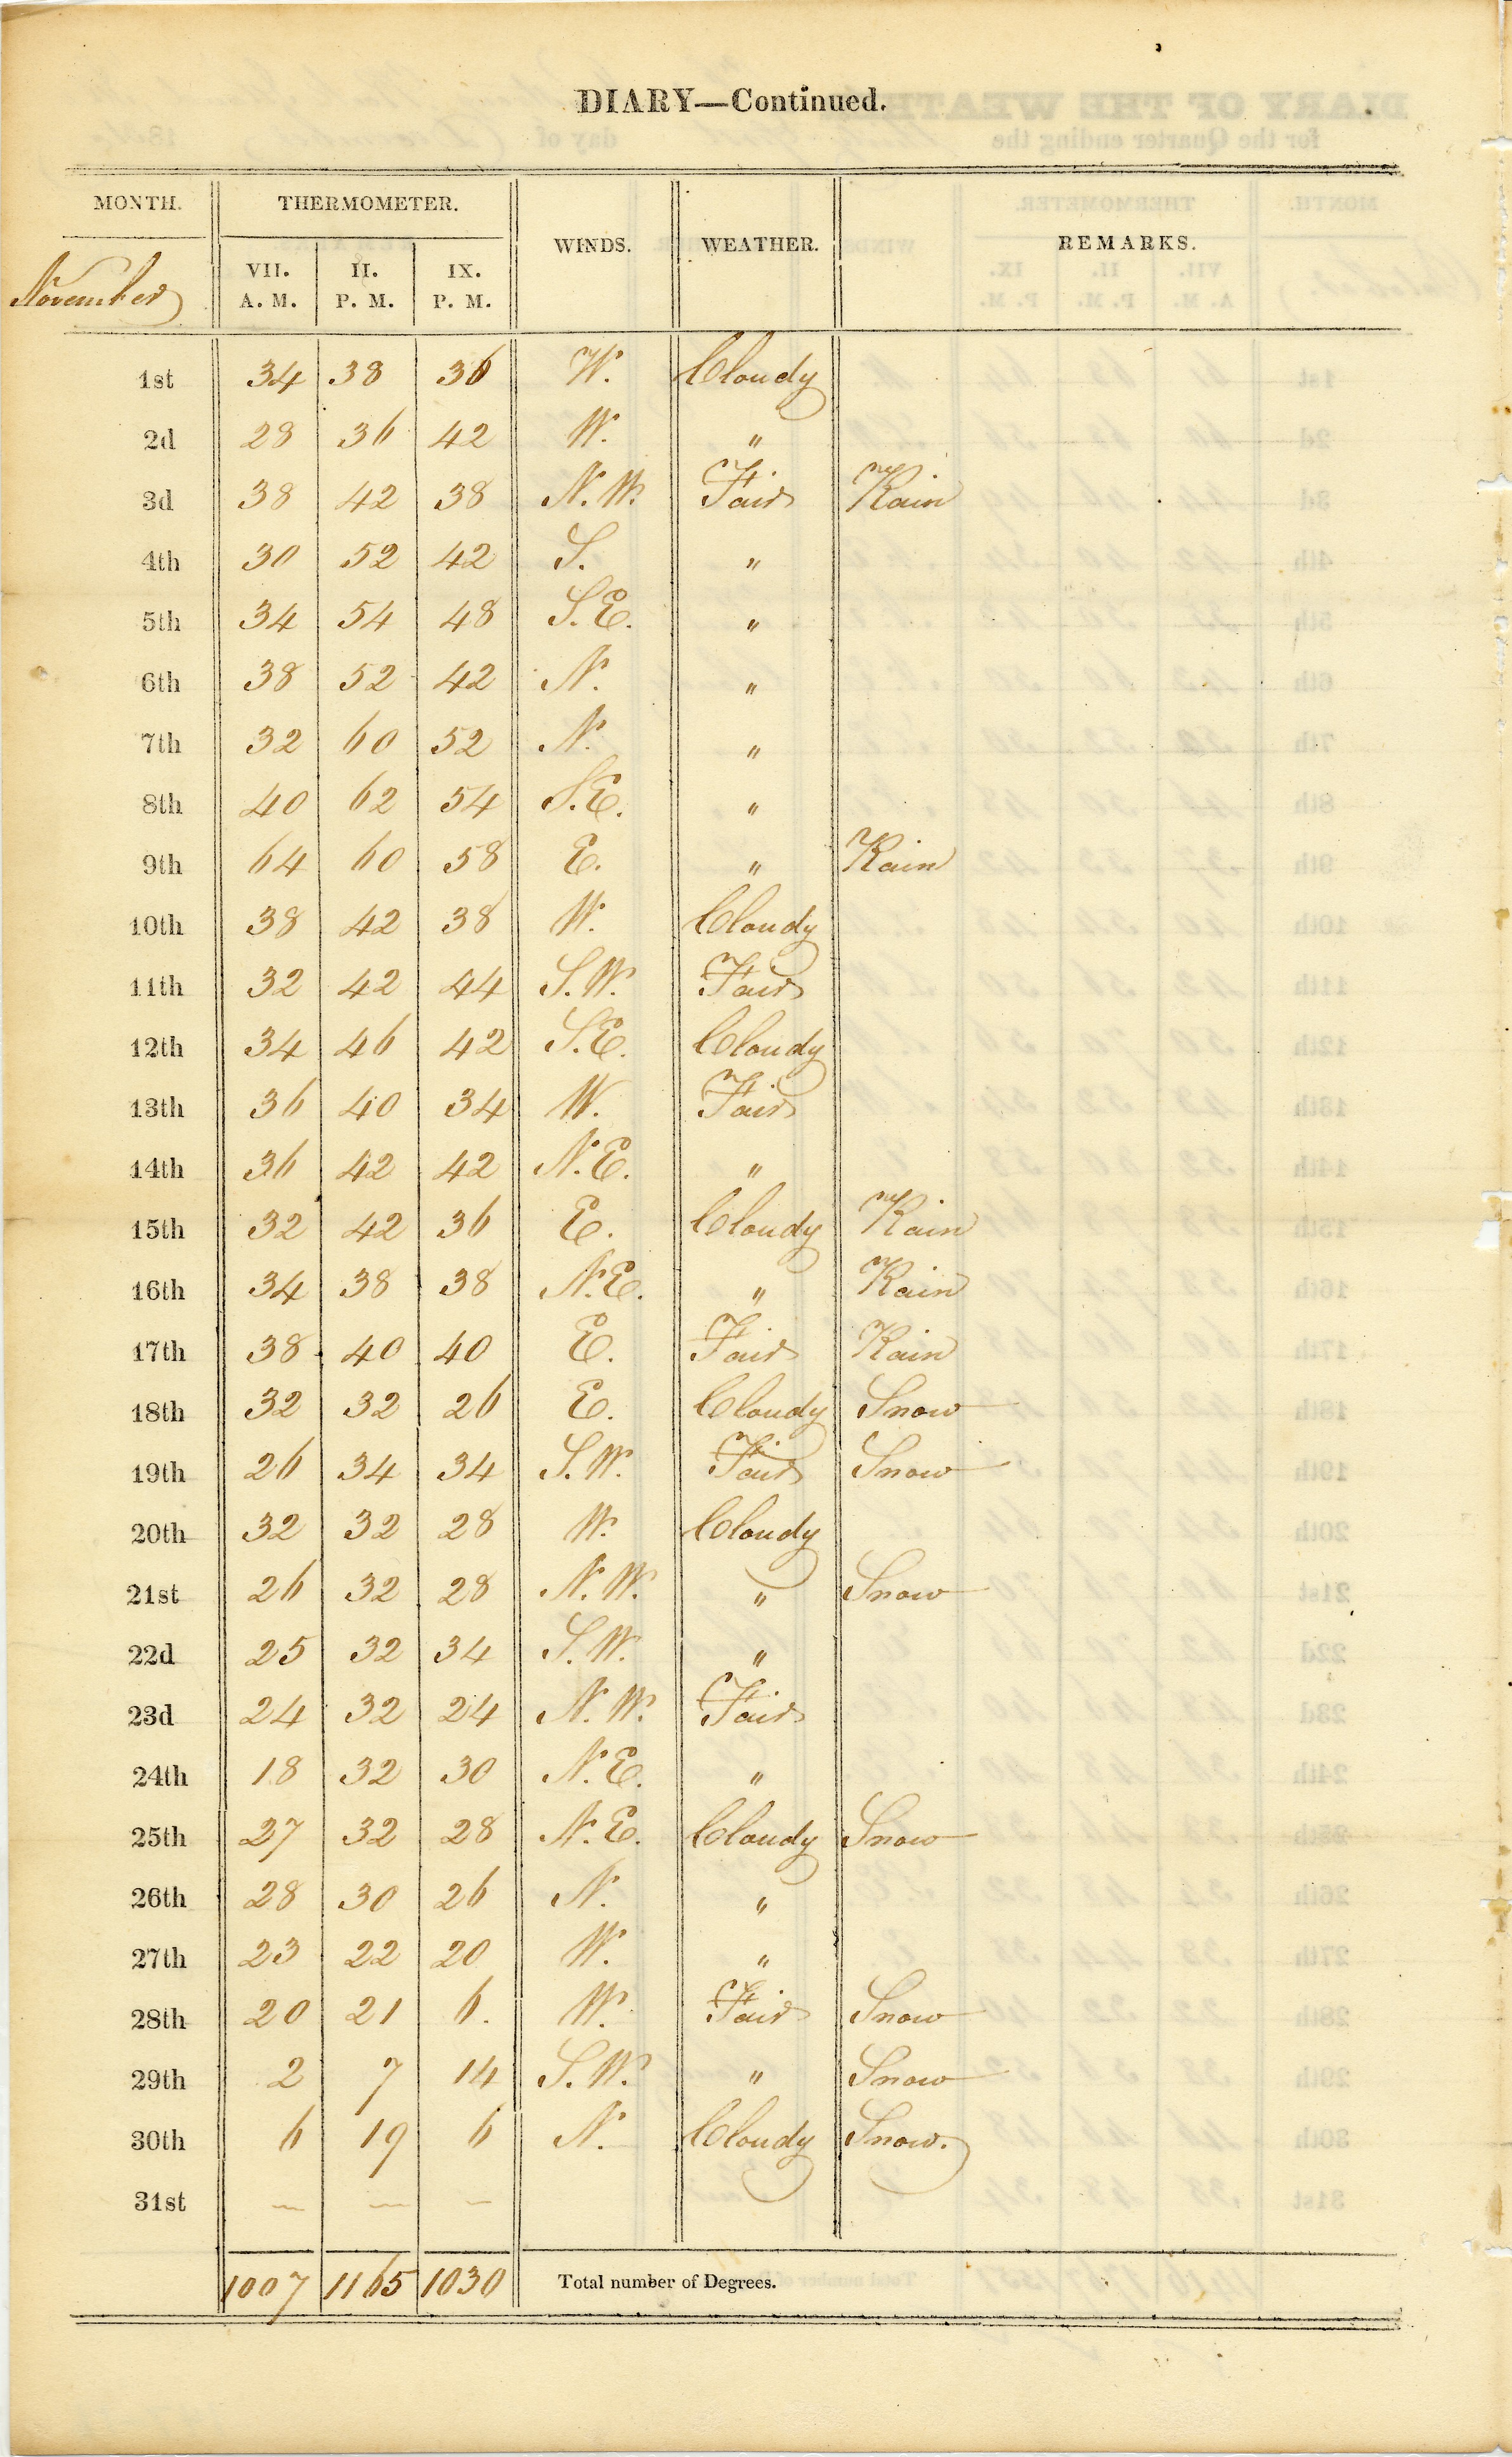 DIARY—Continued.
MONTH. THERMOMETER. WINDS. WEATHER. REMARKS.
November VII. A. M. II. P. M. IX. P. M.
1st 34 38 36 W. Cloudy
2d 28 36 42 W. "
3d 38 42 38 N. W. Fair Rain
4th 30 52 42 S. "
5th 34 54 48 S. E. "
6th 38 52 42 N. "
7th 32 60 52 N. "
8th 40 62 54 S. E. "
9th 64 60 58 E. " Rain
10th 38 42 38 W. Cloudy
11th 32 42 44 S. W. Fair
12th 34 46 42 S. E. Cloudy
13th 36 40 34 W. Fair
14th 36 42 42 N. E. "
15th 32 42 36 E. Cloudy Rain
16th 34 38 38 N. E. " Rain
17th 38 40 40 E. Fair Rain
18th 32 32 26 E. Cloudy Snow
19th 26 34 34 S. W. Fair Snow
20th 32 32 28 W. Cloudy
21st 26 32 28 N. W. " Snow
22d 25 32 34 S. W. "
23d 24 32 24 N. W. Fair
24th 18 32 30 N. E. "
25th 27 32 28 N. E. Cloudy Snow
26th 28 30 26 N. "
27th 23 22 20 W. "
28th 20 21 6. W. Fair Snow
29th 2 7 14 S. W. " Snow
30th 6 19 6 N. Cloudy Snow.
31st — — —
1007 1165 1030 Total number of Degrees.